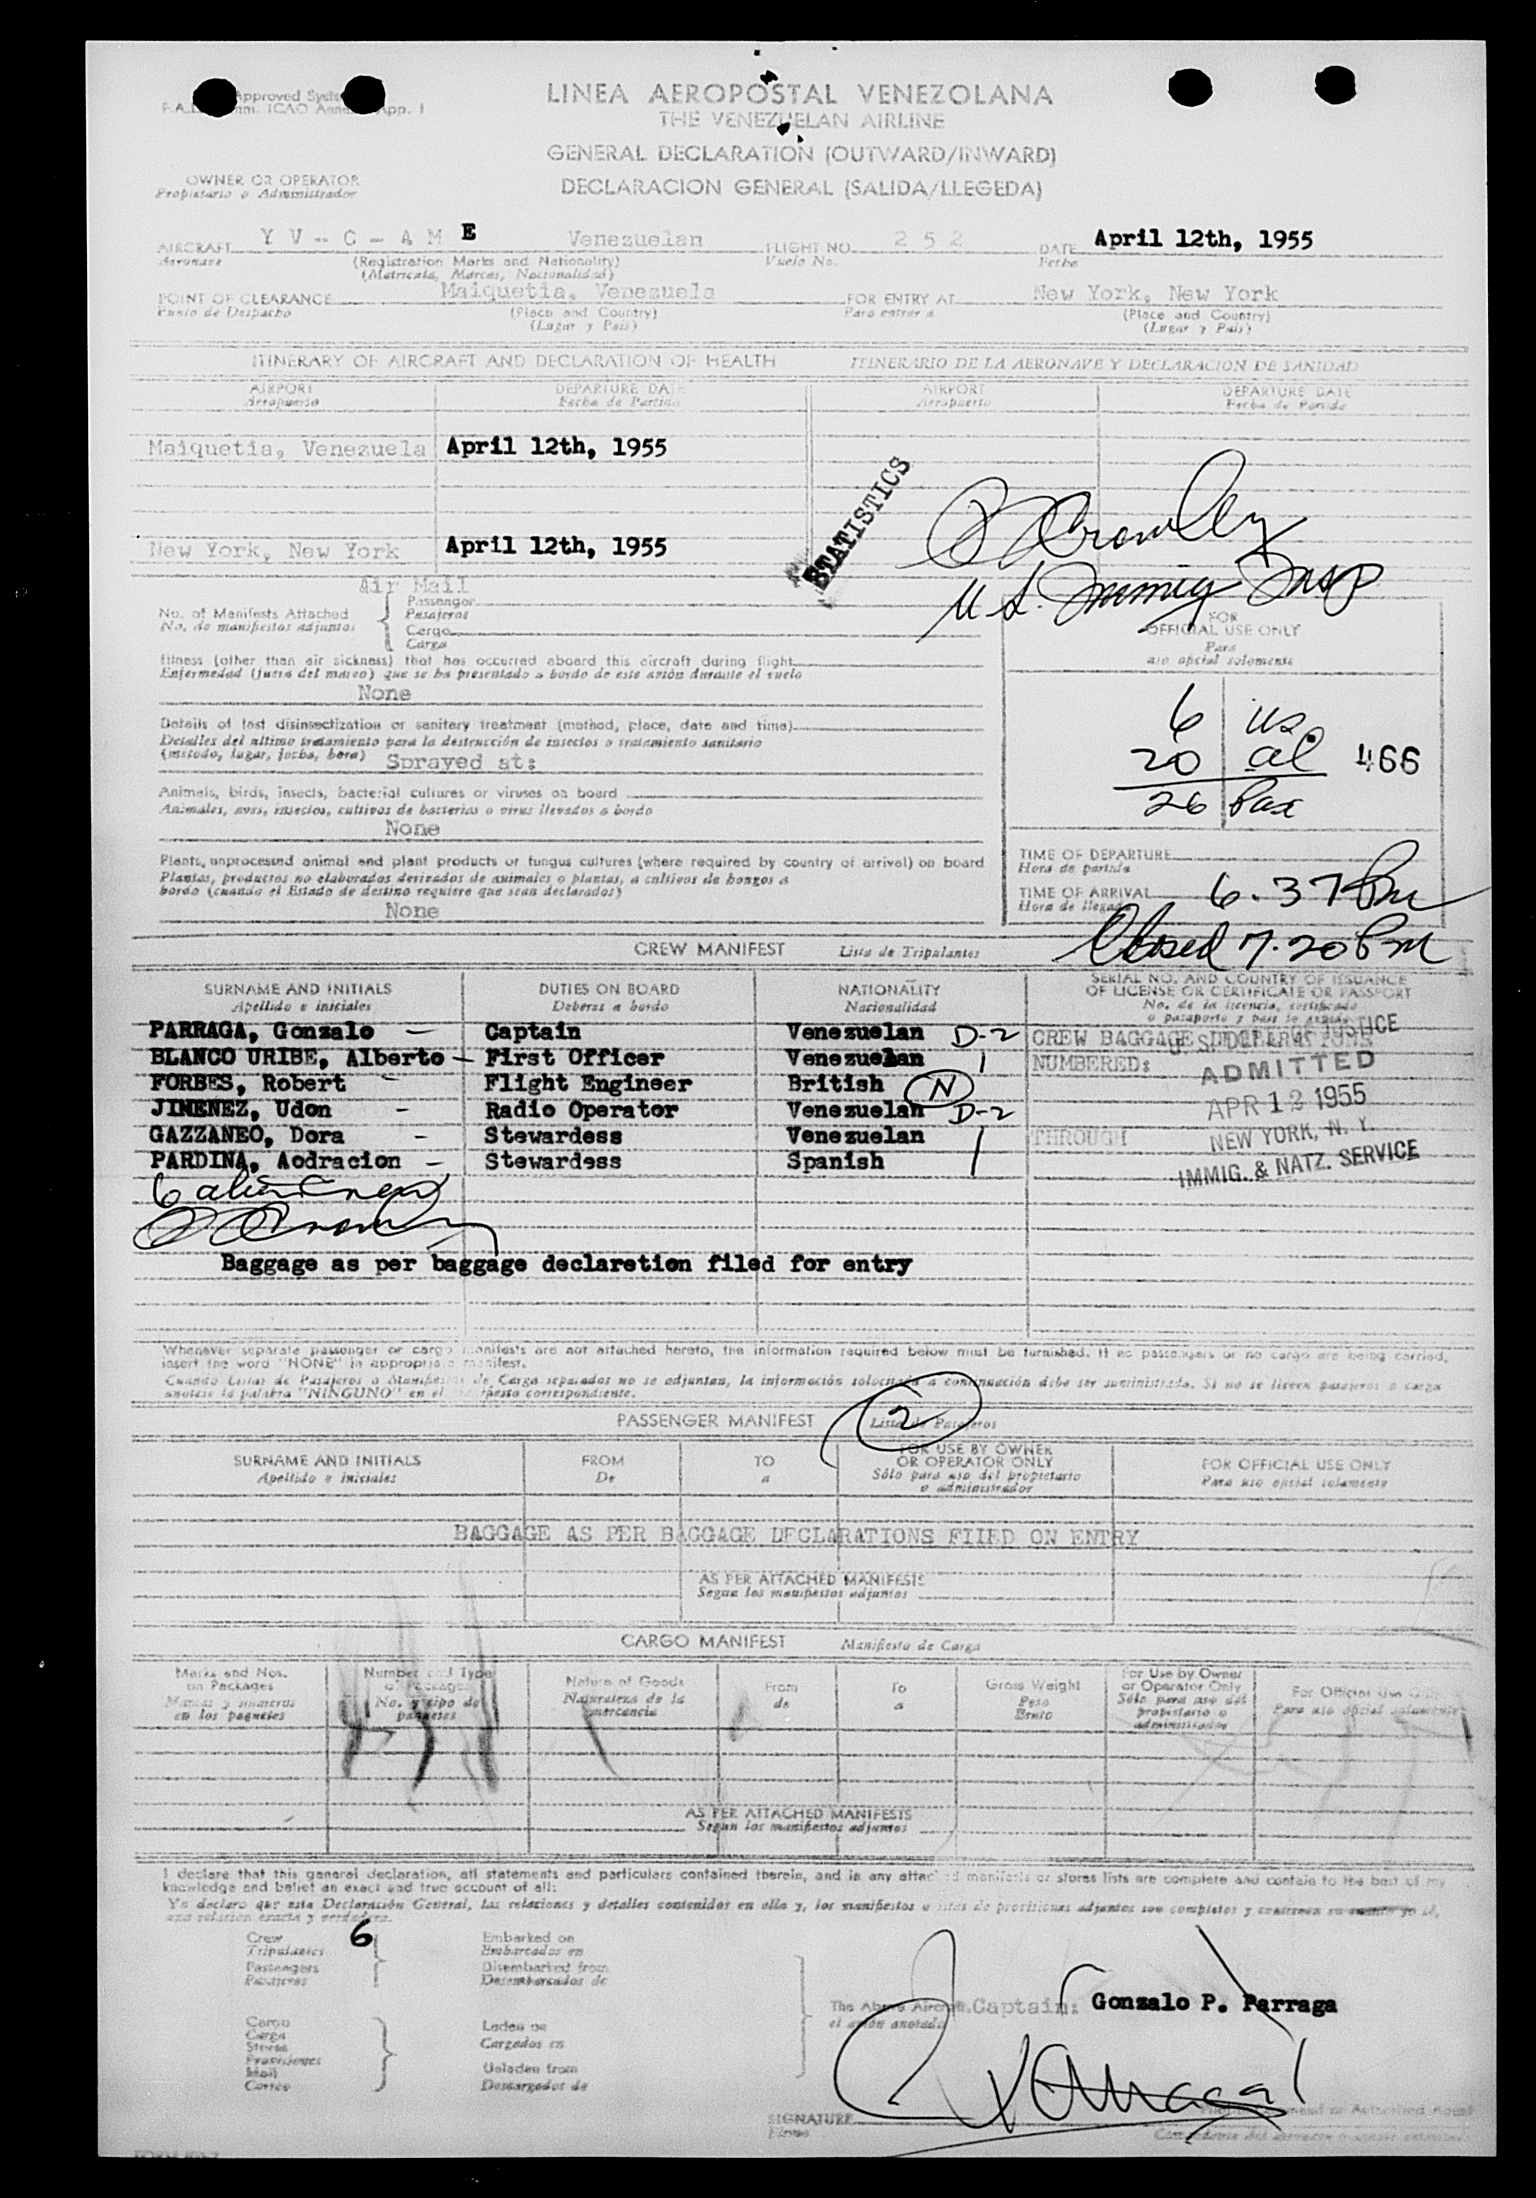 Approved Syste
LINEA AEROPOSTAL VENEZOLANA
THE VENEZUELAN AIRLINE
GENERAL DECLARATION (OUTWARD/INWARD)
DECLARACION GENERAL (SALIDA/LLEGEDA)
OWNER OR OPERATOR
Propietario o Administrador
AIRCRAFT Y V - C - A M E Venezuelan FLIGHT NO. 2 5 2 DATE April 12th, 1955
Aeronave (Registration Marks and Nationality) Vuelo No. Fecha
(Matricula, Marcas, Nacionalidad)
POINT OF CLEARANCE Maiquetia, Venezuela FOR ENTRY AT New York, New York
Punto de Despacho (Place and Country) Para entrar a (Place and Country)
(Lugar y Pais) (Lugar y Pais)
ITINERARY OF AIRCRAFT AND DECLARATION OF HEALTH ITINERARIO DE LA AERONAVE Y DECLARACION DE SANIDAD
AIRPORT DEPARTURE DATE AIRPORT DEPARTURE DATE
Aeropuerto Fecha de Partida Aeropuerto Fecha de Partida
Maiquetia, Venezuela April 12th, 1955
STATISTICS
New York, New York April 12th, 1955
Crowley
U.S. Immig Insp
Air Mail
No. of Manifests Attached Passenger
No. de manifiestos adjuntos Pasajeros
Cargo
Carga
FOR
OFFICIAL USE ONLY
Para
uso oficial solamente
Illness (other than air sickness) that has occurred aboard this aircraft during flight
Enfermedad (fuera del mareo) que se ha presentado a bordo de este avión durante el vuelo
None
Details of last disinsectization or sanitary treatment (method, place, date and time)
Detalles del ultimo tratamiento para la destrucción de insectos o tratamiento sanitario
(método, lugar, fecha, hora) Sprayed at:
6 US.
20 al 466
26 Pax
Animals, birds, insects, bacterial cultures or viruses on board
Animales, aves, insectos, cultivos de bacterias o virus llevados a bordo
None
Plants, unprocessed animal and plant products or fungus cultures (where required by country of arrival) on board
Plantas, productos no elaborados derivados de animales o plantas, o cultivos de hongos a
bordo (cuando el Estado de destino requiere que sean declarados)
None
TIME OF DEPARTURE
Hora de partida
TIME OF ARRIVAL 6.37 Pm
Hora de llegada
Closed 7.20 Pm
CREW MANIFEST Lista de Tripulantes
SURNAME AND INITIALS DUTIES ON BOARD NATIONALITY SERIAL NO. AND COUNTRY OF ISSUANCE
Apellido e iniciales Deberes a bordo Nacionalidad OF LICENSE OR CERTIFICATE OR PASSPORT
No. de la licencia, certificado
PARRAGA, Gonzalo — Captain Venezuelan D-2 CREW BAGGAGE DECLARATIONS
BLANCO URIBE, Alberto — First Officer Venezuelan NUMBERED:
FORBES, Robert - Flight Engineer British N
JIMENEZ, Udon - Radio Operator Venezuelan D-2
GAZZANEO, Dora - Stewardess Venezuelan THROUGH
PARDINA, Aodracion - Stewardess Spanish
ADMITTED
APR 12 1955
NEW YORK, N. Y.
IMMIG. & NATZ. SERVICE
6 alien crew
Crowley
Baggage as per baggage declaretion filed for entry
Whenever separate passenger or cargo manifests are not attached hereto, the information required below must be furnished. If no passengers or no cargo are being carried,
insert the word "NONE" in appropriate manifest.
Cuando Listas de Pasajeros o Manifiestos de Carga separados no se adjuntan, la información solocitada a continuación debe ser suministrada. Si no se llevan pasajeros o carga
anótese la palabra "NINGUNO" en el manifiesto correspondiente.
PASSENGER MANIFEST Lista de Pasajeros 2
SURNAME AND INITIALS FROM TO FOR USE BY OWNER FOR OFFICIAL USE ONLY
Apellido e iniciales De a OR OPERATOR ONLY Para uso oficial solamente
Sólo para uso del propietario
o administrador
BAGGAGE AS PER BAGGAGE DECLARATIONS FIIED ON ENTRY
AS PER ATTACHED MANIFESTS
Segun los manifiestos adjuntos
CARGO MANIFEST Manifiesto de Carga
Marks and Nos. Number and Type Nature of Goods From To Gross Weight For Use by Owner For Official Use
on Packages of Packages Naturaleza de la de a Peso or Operator Only Para uso oficial solamente
Marcas y números No. y tipo de mercancia Bruto Sólo para uso del
en los paquetes paquetes propietario o
administrador
AS PER ATTACHED MANIFESTS
Segun los manifiestos adjuntos
I declare that this general declaration, all statements and particulars contained therein, and in any attached manifests or stores lists are complete and contain to the best of my
knowledge and belief an exact and true account of all:
Yo declaro que esta Declaración General, las relaciones y detalles contenidos en ella y, los manifiestos o listas de provisiones adjuntos son completos y contienen
una relación exacta y verdadera.
Crew 6 Embarked on
Tripulantes Embarcados en
Passengers Disembarked from
Pasajeros Desembarcados de
The Above Aircraft Captain: Gonzalo P. Parraga
el avión anotado
Cargo Laden on
Carga Cargados en
Stores
Provisiones
Mail Unladen from
Correo Descargados de
SIGNATURE
Firma